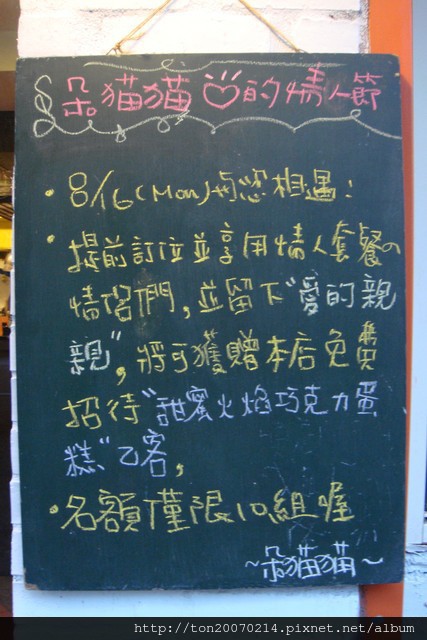 朵貓貓的情人節
・8/16(Mon)與您相遇!
・提前訂位並享用情人套餐の
情侶們,並留下"愛的親
親",將可獲贈本店免費
招待"甜蜜火焰巧克力蛋
糕"乙客,
・名額僅限10組喔
~朵貓貓~
http://ton20070214.pixnet.net/album